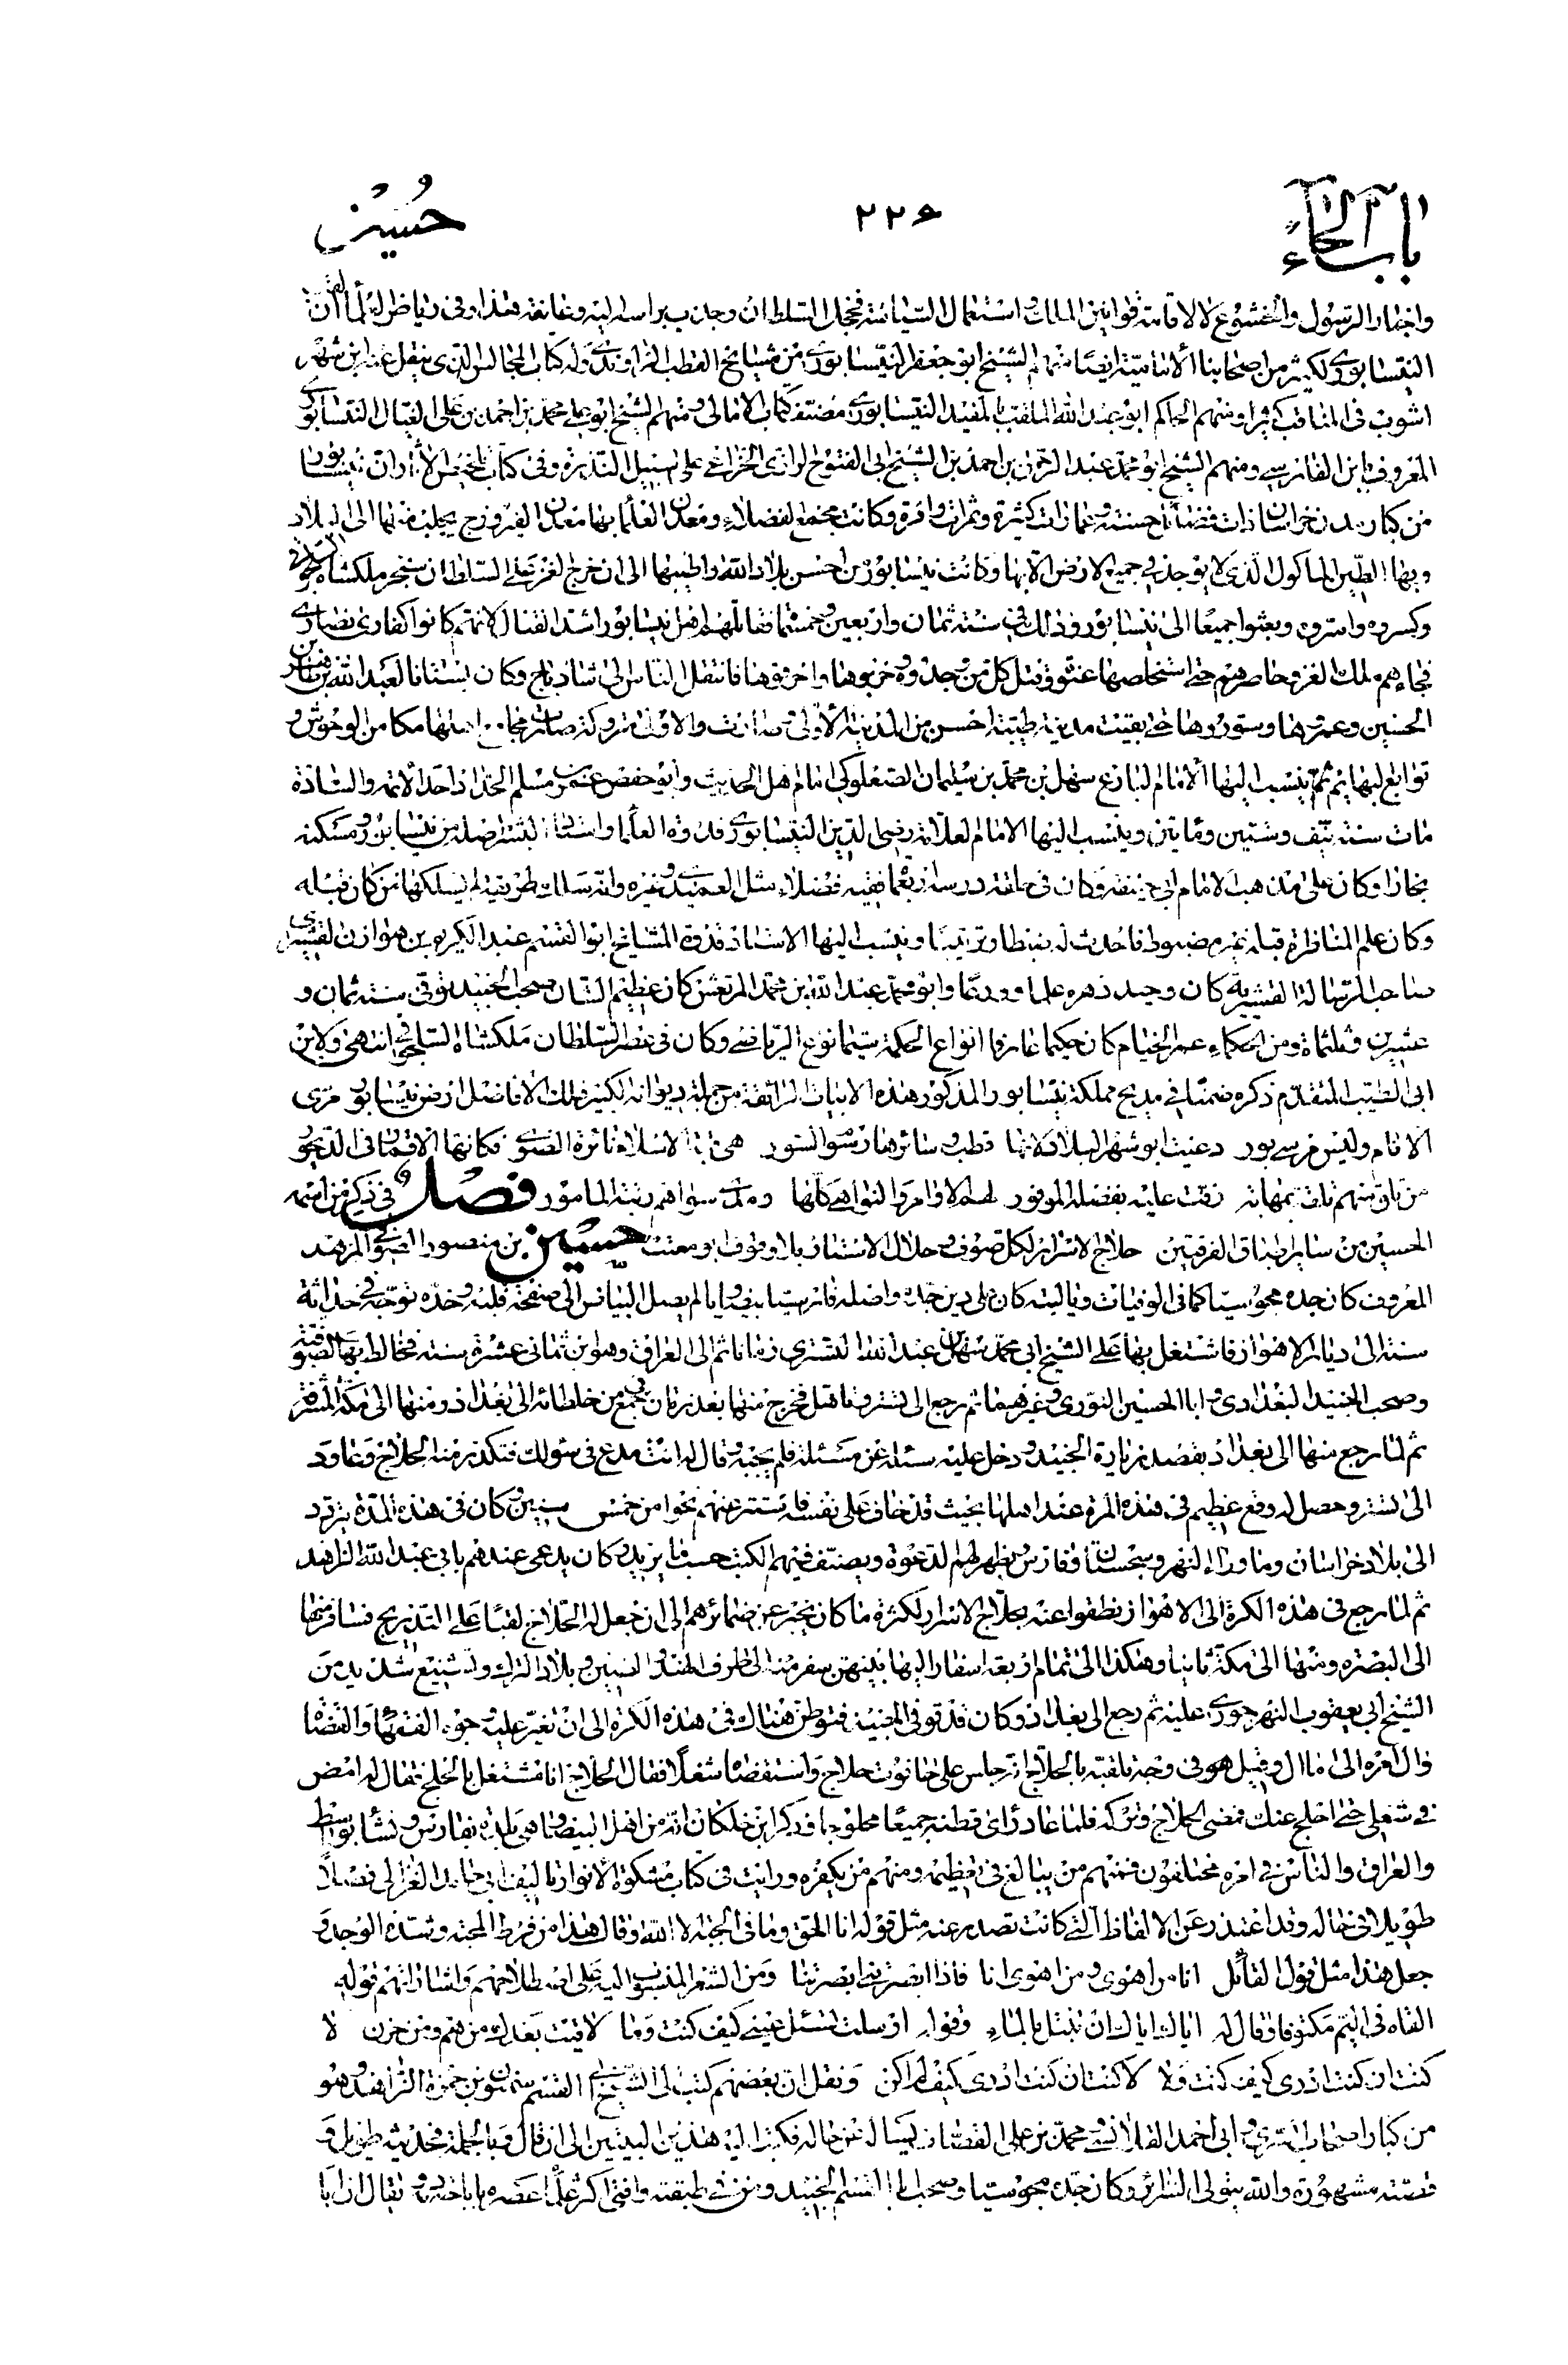 باب الحاء
٢٢۶
حسین
واجتماد الرسول والخشوع لا لاقامة قوانین الملك واستعمال السیاسة فخجل السلطان وجذب براسه الیه وعانقه هذا وفی ریاض العلماء ان لقب
النیسابوری لکثیر من اصحابنا الامامیة ایضا منهم الشیخ ابو جعفر النیسابوری من مشایخ القطب الراوندی وله کتاب المجالس الذی ینقل عنه ابن شهر
اشوب فی المناقب کثیرا ومنهم الحاکم ابو عبد الله الملقب بالمفید النیسابوری مصنف کتاب الامالی ومنهم الشیخ ابو علی محمد بن احمد بن علی الفتال النیسابوری
المعروف بابن الفارسی ومنهم الشیخ ابو محمد عبد الرحمن بن احمد بن الشیخ ابی الفتوح الرازی الخزاعی علی سبیل الندرة وفی کتاب تلخیص الآثار ان نیسابور
من کبار مدن خراسان ذات فضائل حسنة وعمارات کثیرة وثمرات وافرة وکانت مجمع الفضلاء ومعدن العلماء بها معدن الفیروزج یجلب منها الی البلاد
وبها الطین الماکول الذی لا یوجد فی جمیع الارض الا بها وکانت نیسابور من احسن بلاد الله واطیبها الی ان خرج الغز علی السلطان سنجر بن ملکشاه السلجوقی
وکسروه واسروه وبعثوا جمیعا الی نیسابور وذلك فی سنة ثمان واربعین وخمسمائة فقاتلهم اهل نیسابور اشد القتال لانهم کانوا کفاری نصاری
فجاءهم ملك الغز وحاصرهم حتی استخلصها عنوة وقتل کل من وجدوه وخربوها واحرقوها فانتقل الناس الی شادیاخ وکان بستانا لعبد الله بن طاهر بن
الحسین وعمروها وسوروها حتی بقیت مدینة طیبة احسن من المدینة الاولی وصارت والاولی متروکة صارت مجامع اهلها مکامن الوحوش و
توابع لبهایم ثم ینسب الیها الامام البارع سهل بن محمد بن سلیمان الصعلوکی امام اهل الحدیث وابو حفص عمر بن مسلم الحداد احد الائمة والسادة
مات سنة نیف وستین ومأتین وینسب الیها الامام العلامة رضی الدین النیسابوری قدوة العلماء واستاد البشر اصله من نیسابور ومسکنه
بخارا وکان علی مذهب الامام ابی حنیفة وکان فی حلقة درسه اربعمائة فقیه فضلاء مثل العمیدی وغیره وانه سلك طریقة لم یسلکها من کان قبله
وکان علم المناظرة قبله غیر مضبوط فاحدث له ضبطا وترتیبا وینسب الیها الاستاذ قدوة المشایخ ابو القسم عبد الکریم بن هوازن القشیری
صاحب الرسالة القشیریة کان وحید دهره علما وورعا وابو محمد عبد الله بن محمد المرتعش کان عظیم الشان صحب الجنید توفی سنة ثمان و
عشرین وثلثمائة ومن الحکماء عمر الخیام کان حکیما عارفا انواع الحکمة سیما نوع الریاضی وکان فی عصر السلطان ملکشاه السلجوقی انتهی ولابن
ابی الطیب المتقدم ذکره ضمنا فی مدیح مملکة نیسابور المذکور هذه الابیات الرائقة من جملة دیوانه الکبیر فلك الافاضل ارض نیسابور مرسی
الانام ولیس مرسی بور دعیت ابو شهر البلاد لانها قطب وسائرها رسوم السور هی قبة الاسلام نائرة الصوی فکانها الاقمار فی الدیجور
من تلق منهم تلقه بمهابة زفت علیه بفضله الموفور لهم الاوامر والنواهی کلها ومدی سواهم رتبة المامور فصل فی ذکر من اسمه
الحسین من سایر طباق الفریقین حلاج الاسرار لکل تصوف وحلال الاستار بلا وقوف ابو معتب حسین بن منصور الصوفی المزهد
المعروف کان جده مجوسیا کما فی الوفیات ویا لیته کان علی دین جده واصله فارسیا بیضاویا لم یصل البیاض الی صفحة قلبه وخده توجه فی حداثة
سنه الی دیار الاهواز فاشتغل بها علی الشیخ ابی محمد سهل بن عبد الله التستری زمانا ثم الی العراق وهو ابن ثمانی عشرة سنة فخالط بها الصوفیة
وصحب الجنید البغدادی وابا الحسین النوری وغیرهما ثم رجع الی تستر وتاهل فخرج منها بعد زمان فی جمع من خلطائه الی بغداد ومنها الی مکة المشرفة
ثم لما رجع منها الی بغداد بقصد زیارة الجنید ودخل علیه سئله عن مسئلة فلم یجبه وقال له انت مدع فی سؤلك فتکدر منه الحلاج وعاود
الی تستر وحصل له وقع عظیم فی هذه المرة عند اهلها بحیث قد خاف علی نفسه فاستتر عنهم نحوا من خمس سنین وکان فی هذه المدة یتردد
الی بلاد خراسان وما وراء النهر وسجستان وفارس ویظهر لهم الدعوة ویصنف فیهم الکتب حسب ما یرید وکان یدعی عندهم بابی عبد الله الزاهد
ثم لما رجع فی هذه الکرة الی الاهواز نطقوا عنه بحلاج الاسرار لکثرة ما کان یخبر عن ضمائرهم الی ان جعل له الحلاج لقبا علی التدریج فسافر منها
الی البصرة ومنها الی مکة ثانیا وهکذا الی تمام اربعة اسفار الیها بینهن سفر منه الی طرف الهند والصین وبلاد الترك وله تشنیع شدید من
الشیخ ابی یعقوب النهرجوری علیه ثم رجع الی بغداد وکان قد توفی الجنید فتوطن هناك فی هذه الکرة الی ان تغیر علیه وجوه الفقهاء والقضاة
فال امره الی ما ال وقیل هو فی وجه تلقبه بالحلاج انه جلس علی حانوت حلاج واستقضاه شغلا فقال الحلاج انا مشتغل بالحلج فقال له امض
فی شغلی حتی احلج عنك فمضی الحلاج وترکه فلما عاد رأی قطنه جمیعا محلوجا وذکر ابن خلکان انه من اهل البیضاء وهی بلدة بفارس ونشا بواسط
والعراق والناس فی امره مختلفون فمنهم من یبالغ فی تعظیمه ومنهم من یکفره ورایت فی کتاب مشکوة الانوار تالیف ابی حامد الغزالی فصلا
طویلا فی حاله وقد اعتذر عن الالفاظ التی کانت تصدر عنه مثل قوله انا الحق وما فی الجبة الا الله وقال هذا من فرط المحبة وشدة الوجد و
جعل هذا مثل قول القائل انا من اهوی ومن اهوی انا فاذا ابصرتنی ابصرتنا ومن الشعر المنسوب الیه علی اصطلاحهم واشاراتهم قوله
القاه فی الیم مکتوفا وقال له ایاك ایاك ان تبتل بالماء وقوله ارسلت تسئل عینی کیف کنت وما لاقیت بعدك من هم ومن حزن لا
کنت ان کنت ادری کیف کنت ولا لا کنت ان کنت ادری کیف لم اکن ونقل ان بعضهم کتب الی الشیخ ابی القسم سمنون بن حمزة الزاهد وهو
من کبار اصحاب السری وابی احمد القلانسی ومحمد بن علی القصاب یسأله عن حاله فکتب الیه هذین البیتین الی ان قال وبالجملة فحدیثه طویل و
قصته مشهورة والله یتولی السرائر وکان جده مجوسیا وصحب ابا القسم الجنید ومن فی طبقته وافتی اکثر علماء عصره باباحة دمه ویقال ان ابا